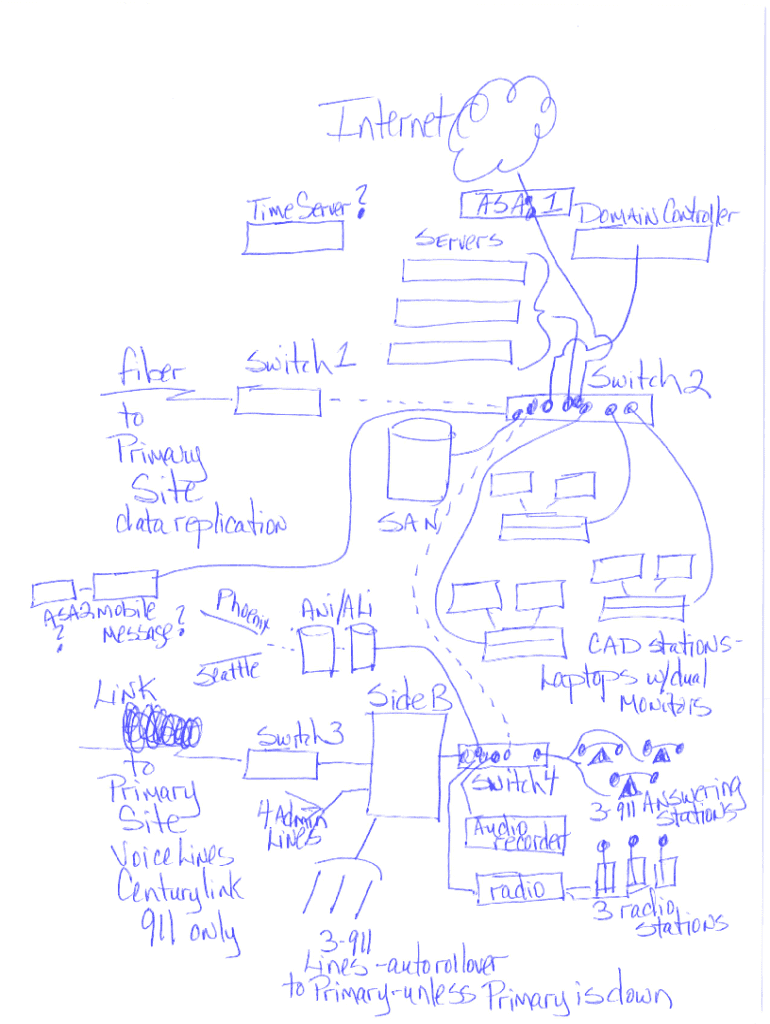 Internet
Time Server?
ASA 1
Domain Controller
Servers
fiber
Switch 1
Switch 2
to
Primary
Site
data replication
SAN
ASA2
?
mobile
Message?
Phoenix
Seattle
Ani/ALi
CAD stations-
Laptops w/dual
Monitors
Link
to
Primary
Site
Voice Lines
Centurylink
911 only
Switch3
Side B
Switch4
4 Admin
Lines
Audio
recorder
radio
3-911 Answering
Stations
3 radio
stations
3-911
Lines-autorollover
to Primary-unless Primary is down